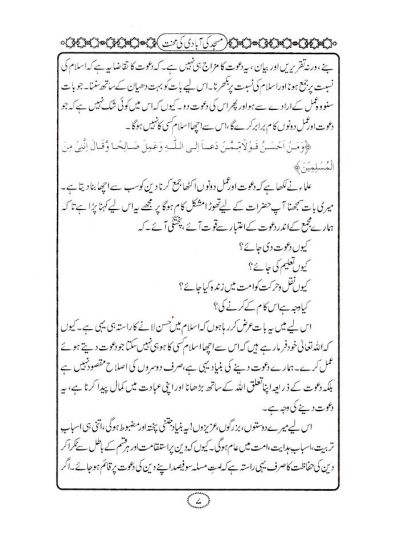 مسجد کی آبادی کی محنت
بنے، ورنہ تقریریں اور بیان، یہ دعوت کا مزاج ہی نہیں ہے۔ کہ دعوت کا تقاضا یہ ہے کہ اسلام کی
نسبت پر جمع ہونا اور اسلام کی نسبت پر بکھرنا۔ اس لیے بات کو بہت دھیان کے ساتھ سننا۔ جو بات
سنو وہ عمل کے ارادے سے ہو اور پھر اس کی دعوت دو۔ کیوں کہ اس میں کوئی شک نہیں ہے کہ جو
دعوت اور عمل دونوں کام برابر کرے گا، اس سے اچھا اسلام کسی کا نہیں ہوگا۔
﴿وَمَنْ اَحْسَنُ قَوْلًا مِّمَّنْ دَعَا اِلَی اللّٰہِ وَعَمِلَ صَالِحًا وَّقَالَ اِنَّنِیْ مِنَ
الْمُسْلِمِیْنَ﴾
علماء نے لکھا ہے کہ دعوت اور عمل دونوں اکٹھا جمع کرنا دین کو سب سے اچھا بنا دیتا ہے۔
میری بات سمجھنا آپ حضرات کے لیے تھوڑا مشکل کام ہوگا پر مجھے یہ اس لیے کہنا پڑ رہا ہے تاکہ
ہمارے مجمع کے اندر دعوت کے اعتبار سے قوت آئے، پختگی آئے۔ کہ
کیوں دعوت دی جائے؟
کیوں تعلیم کی جائے؟
کیوں نقل و حرکت کو امت میں زندہ کیا جائے؟
کیا وجہ ہے اس کام کے کرنے کی؟
اس لیے میں یہ بات عرض کر رہا ہوں کہ اسلام میں حسن لانے کا راستہ ہی یہی ہے۔ کیوں
کہ اللہ تعالیٰ خود فرما رہے ہیں کہ اس سے اچھا اسلام کسی کا ہو ہی نہیں سکتا جو دعوت دیتے ہوئے
عمل کرے۔ ہمارے دعوت دینے کی بنیاد یہی ہے، صرف دوسروں کی اصلاح مقصود نہیں ہے
بلکہ دعوت کے ذریعہ اپنا تعلق اللہ کے ساتھ بڑھانا اور اپنی عبادت میں کمال پیدا کرنا ہے، یہ
دعوت دینے کی وجہ ہے۔
اس لیے میرے دوستوں، بزرگوں، عزیزوں! یہ بنیاد جتنی پختہ اور مضبوط ہوگی، اتنی ہی اسباب
تربیت، اسباب ہدایت، امت میں عام ہوگی۔ کیوں کہ دین پر استقامت اور ہر قسم کے باطل سے ٹکرا کر
دین کی حفاظت کا صرف یہی راستہ ہے کہ امت مسلمہ سو فیصد اپنے دین کی دعوت پر قائم ہو جائے۔ اگر
۷